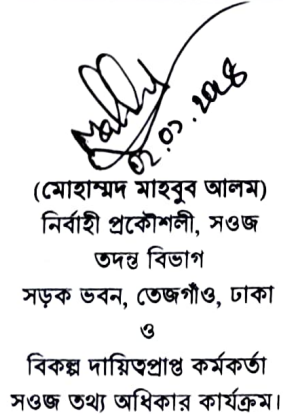 ০২.০১.২০২৪
(মোহাম্মদ মাহবুব আলম)
নির্বাহী প্রকৌশলী, সওজ
তদন্ত বিভাগ
সড়ক ভবন, তেজগাঁও, ঢাকা
ও
বিকল্প দায়িত্বপ্রাপ্ত কর্মকর্তা
সওজ তথ্য অধিকার কার্যক্রম।